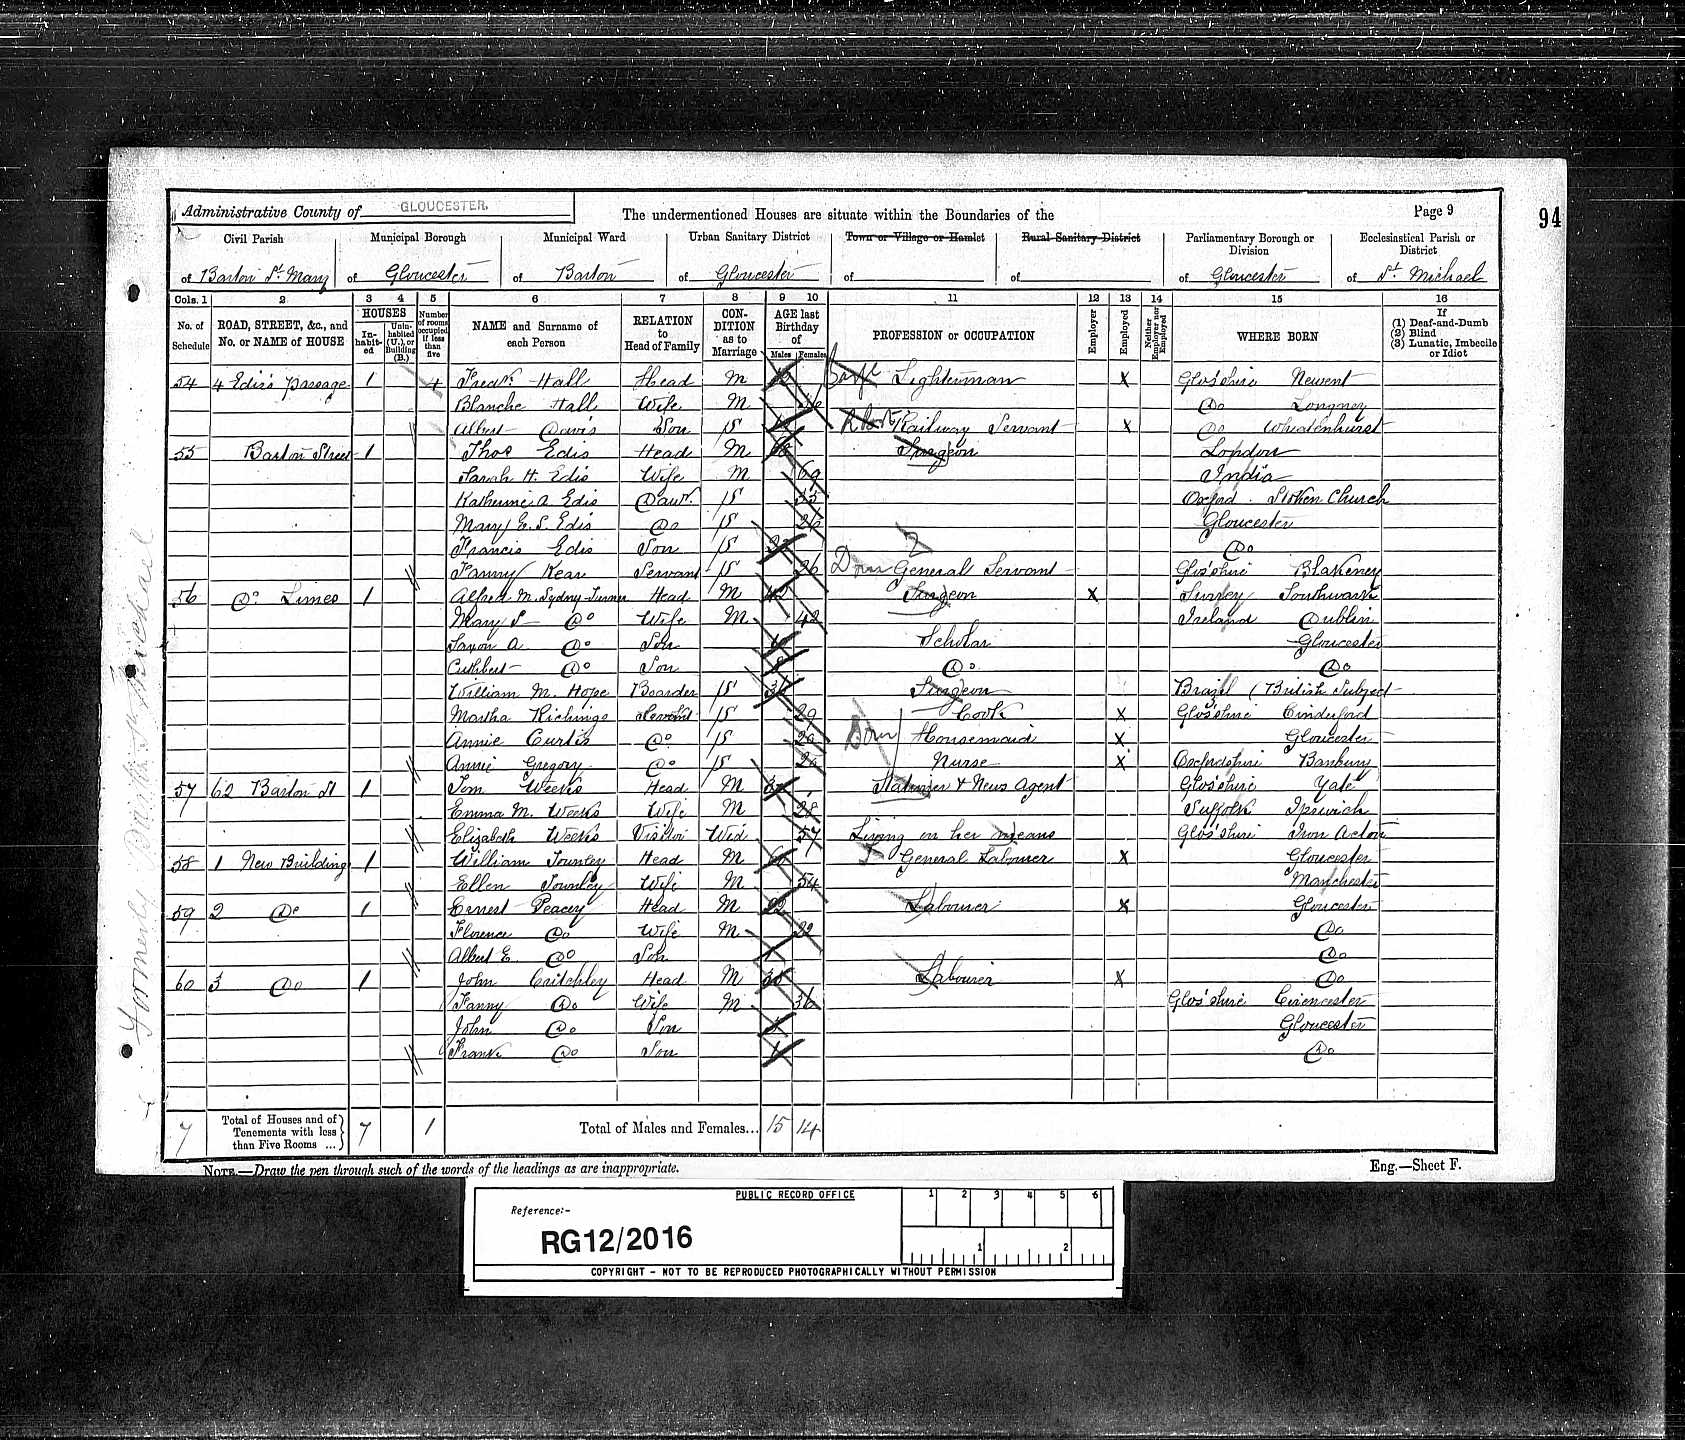 Administrative County of GLOUCESTER.
The undermentioned Houses are situate within the Boundaries of the
Page 9
94
Civil Parish Municipal Borough Municipal Ward Urban Sanitary District Town or Village or Hamlet Rural Sanitary District Parliamentary Borough or Division Ecclesiastical Parish or District
of Barton St. Mary of Gloucester of Barton of Gloucester of of of Gloucester of St. Michael
Cols. 1 2 3 4 5 6 7 8 9 10 11 12 13 14 15 16
No. of Schedule ROAD, STREET, &c., and No. or NAME of HOUSE HOUSES Inhabited Uninhabited (U.), or Building (B.) Number of rooms occupied if less than five NAME and Surname of each Person RELATION to Head of Family CONDITION as to Marriage AGE last Birthday of Males Females PROFESSION or OCCUPATION Employer Employed Neither Employer nor Employed WHERE BORN If (1) Deaf-and-Dumb (2) Blind (3) Lunatic, Imbecile or Idiot
54 4 Edis's Passage 1 4 Fredk. Hall Head M Lighterman X Glos'shire Newent
Blanche Hall Wife M Do Longney
Albert Davis Son S Railway Servant X Do Wheatenhurst
55 Barton Street 1 Thos Edis Head M Surgeon London
Sarah H. Edis Wife M 69 India
Katherine A Edis Daur. S 35 Oxford Stoken Church
Mary E. S. Edis Do S 26 Gloucester
Francis Edis Son S Do
Fanny Kear Servant S 26 Dom General Servant Glos'shire Blakeney
56 Do Limes 1 Alfred M. Sydney-Turner Head M Surgeon X Surrey Southwark
Mary S Do Wife M 42 Ireland Dublin
Saxon A Do Son Scholar Gloucester
Cuthbert Do Son Do Do
William M. Hope Boarder S Surgeon Brazil (British Subject
Martha Richings Servant S 29 Cook X Glos'shire Cinderford
Annie Curtis Do S 26 Dom Housemaid X Gloucester
Annie Gregory Do S Nurse X Oxfordshire Banbury
57 62 Barton St 1 Tom Weeks Head M Stationer & News Agent Glos'shire Yate
Emma M. Weeks Wife M 28 Suffolk Ipswich
Elizabeth Weeks Visitor Wid 57 Living on her means Glos'shire Iron Acton
58 1 New Buildings 1 William Townley Head M General Labourer X Gloucester
Ellen Townley Wife M 54 Manchester
59 2 Do 1 Ernest Peacey Head M 22 Labourer X Gloucester
Florence Do Wife M 22 Do
Albert E. Do Son 1 Do
60 3 Do 1 John Critchley Head M Labourer X Do
Fanny Do Wife M 36 Glos'shire Cirencester
John Do Son Gloucester
Frank Do Son Do
7 Total of Houses and of Tenements with less than Five Rooms ... 7 1 Total of Males and Females... 15 14
NOTE.—Draw the pen through such of the words of the headings as are inappropriate.
Eng.—Sheet F.
Formerly District St Michael
PUBLIC RECORD OFFICE 1 2 3 4 5 6
Reference:-
RG12/2016 1 2
COPYRIGHT - NOT TO BE REPRODUCED PHOTOGRAPHICALLY WITHOUT PERMISSION